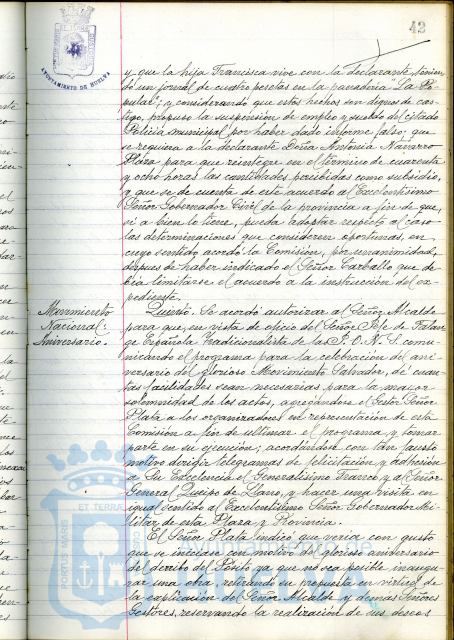 42
AYUNTAMIENTO DE HUELVA
y que la hija Francisca vive con la declarante, tenien-
do un jornal de cuatro pesetas en la panadería "La Po-
pular"; y considerando que estos hechos son dignos de cas-
tigo, propuso la suspensión de empleo y sueldo del citado
Policía municipal por haber dado informe falso; que
se requiera a la declarante Doña Antonia Navarro
Plaza para que reintegre en el término de cuarenta
y ocho horas las cantidades percibidas como subsidio,
y que se dé cuenta de este acuerdo al Excelentísimo
Señor Gobernador Civil de la provincia a fin de que,
si a bien lo tiene, pueda adoptar respecto al caso
las determinaciones que consideren oportunas, en
cuyo sentido acordó la Comisión, por unanimidad,
después de haber indicado el Señor Carballo que de-
bía limitarse el acuerdo a la instrucción del ex-
pediente.
Movimiento
Nacional:
Aniversario.
Quinto. Se acordó autorizar al Señor Alcalde
para que, en vista de oficio del Señor Jefe de Falan-
ge Española Tradicionalista de las J.O.N.S. comu-
nicando el programa para la celebración del ani-
versario del glorioso Movimiento Salvador, dé cuan-
tas facilidades sean necesarias para la mayor
solemnidad de los actos, agregándose el Gestor Señor
Plata a los organizadores en representación de esta
Comisión a fin de ultimar el programa y tomar
parte en su ejecución; acordándose con tan fausto
motivo dirigir telegramas de felicitación y adhesión
a Su Excelencia el Generalísimo Franco y al Señor
General Queipo de Llano, y hacer una visita en
igual sentido al Excelentísimo Señor Gobernador Mi-
litar de esta Plaza y Provincia.
El Señor Plata indicó que vería con gusto
que se inicien con motivo del glorioso aniversario
del derribo del Pósito ya que no sea posible inaugu-
rar una obra, retirando su propuesta en virtud de
la explicación del Señor Alcalde y demás Señores
Gestores, reservando la realización de sus deseos
PORTUS MARIS
ET TERRAE